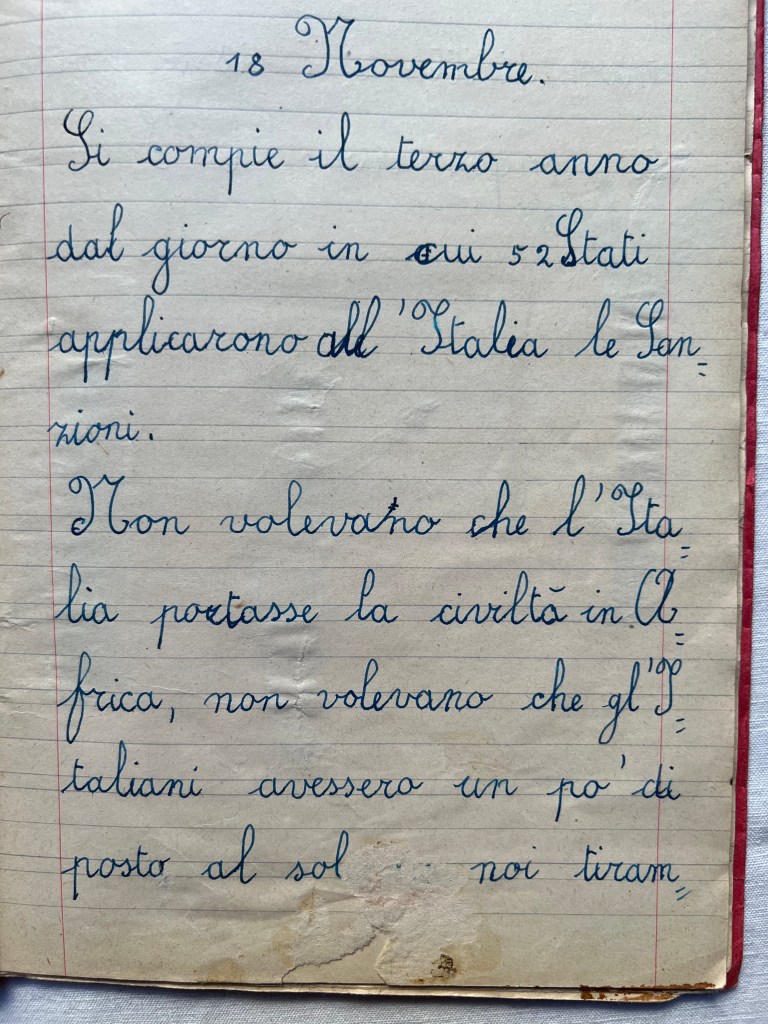 18 Novembre.
Si compie il terzo anno
dal giorno in cui 52 Stati
applicarono all'Italia le San=
zioni.
Non volevano che l'Ita=
lia portasse la civiltà in A=
frica, non volevano che gl'I=
taliani avessero un po' di
posto al sol noi tiram=